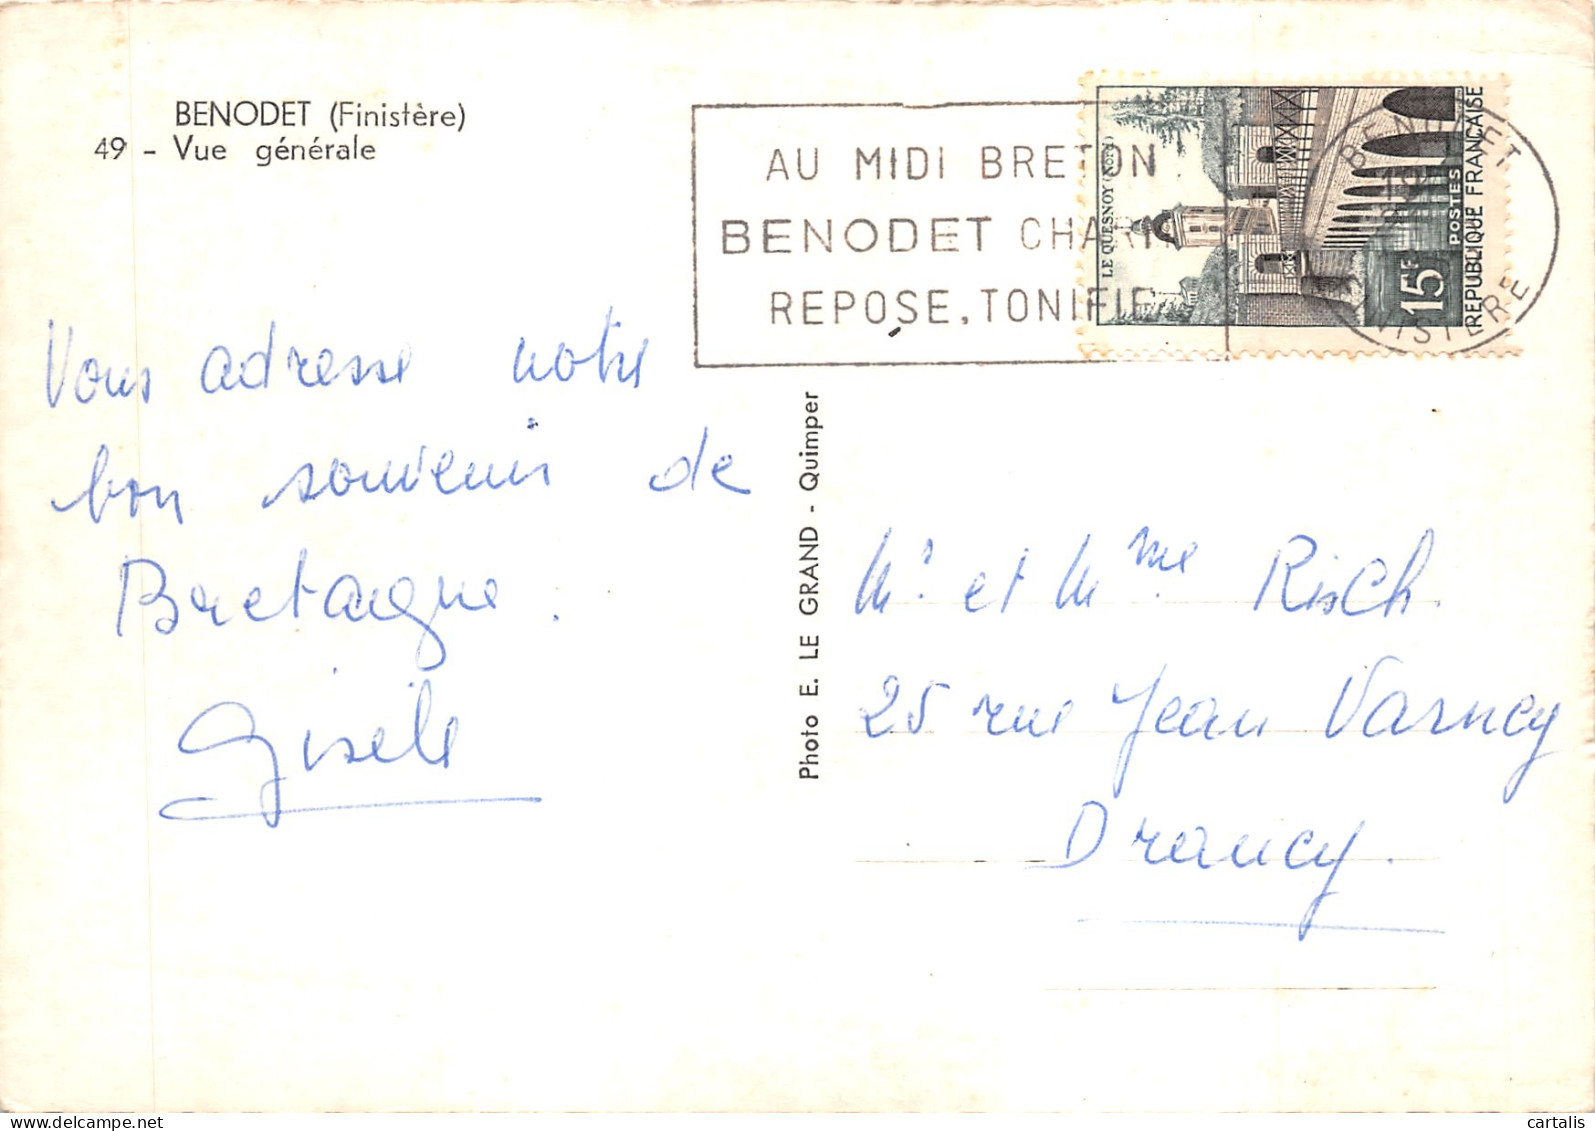 BENODET (Finistère)
49 - Vue générale
AU MIDI BRETON
BENODET CHARM
REPOSE, TONIFIE
LE QUESNOY (Nord)
15F
POSTES
REPUBLIQUE FRANÇAISE
BENODET
FINISTERE
Vous adresse notre
bon souvenir de
Bretagne.
Gisèle
Photo E. LE GRAND - Quimper
Mr. et Mme. Risch.
25 rue Jean Varncy
Drancy.
delcampe.net
cartalis